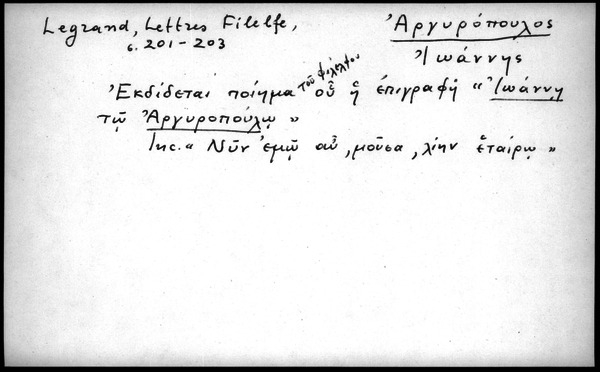 Legrand, Lettres Filelfe,
σ. 201-203
Ἀργυρόπουλος
Ἰωάννης
Ἐκδίδεται ποίημα τοῦ Φιλέλφου οὗ ἡ ἐπιγραφή "Ἰωάννῃ
τῷ Ἀργυροπούλῳ"
Inc. "Νῦν ἐμῷ αὖ, μοῦσα, λίην ἑταίρῳ"